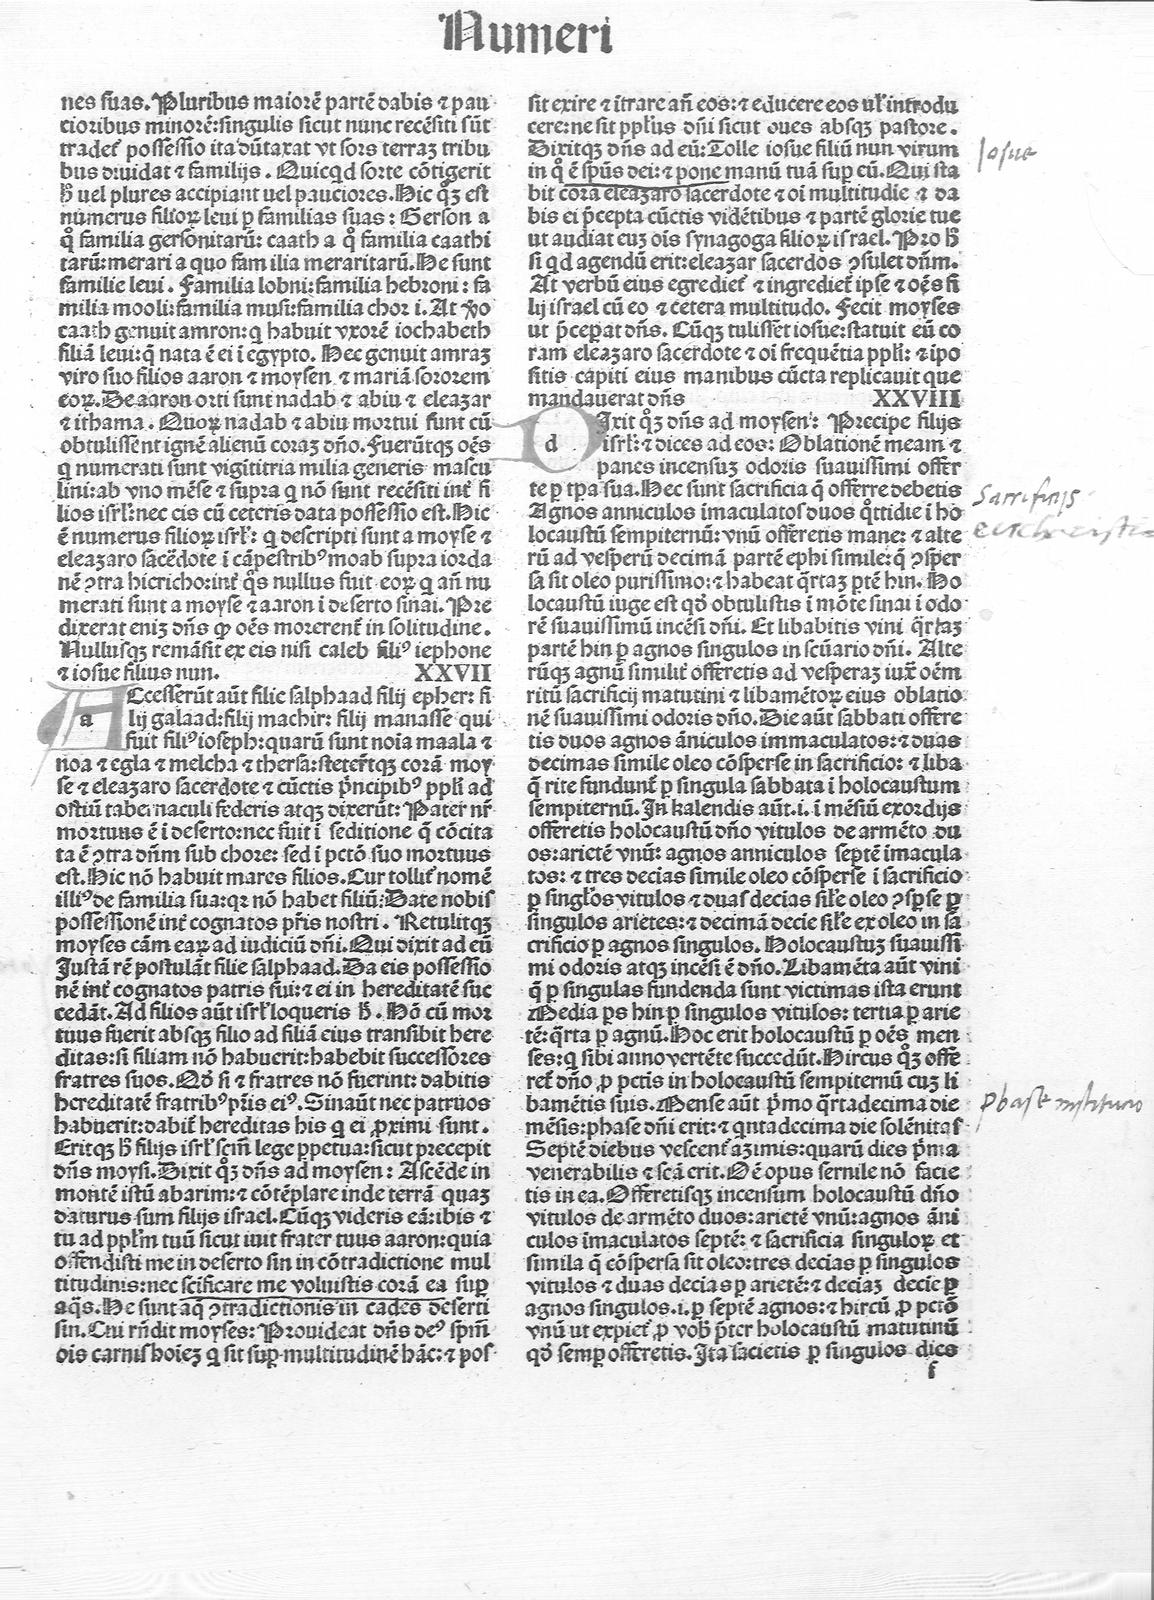 Numeri
nes suas. Pluribus maiorē partē dabis ⁊ pau
cioribus minorē: singulis sicut nunc recēsiti sūt
tradet᷑ possessio ita dūtaxat vt sors terraꝫ tribu
bus diuidat ⁊ familijs. Quicqd sorte cōtigerit
ħ uel plures accipiant uel pauciores. Hic qͦꝫ est
numerus filioꝝ leui ꝑ familias suas: Gerson a
qͦ familia gersonitarū: caath a qͦ familia caathi
tarū: merari a quo familia meraritarū. He sunt
familie leui. Familia lobni: familia hebroni: fa
milia mooli: familia musi: familia chori. At ꝟo
caath genuit amron: q habuit vxorē iochabeth
filiā leui: q̄ nata ē ei ī egypto. Hec genuit amraꝫ
viro suo filios aaron ⁊ moysen ⁊ mariā sororem
eoꝝ. De aaron orti sunt nadab ⁊ abiu ⁊ eleazar
⁊ ithama. Quoꝝ nadab ⁊ abiu mortui sunt cū
obtulissent ignē alienū coraꝫ dn̄o. Fuerūtqꝫ oēs
q numerati sunt vigītitria milia generis mascu
lini: ab vno mēse ⁊ supra q nō sunt recēsiti int᷑ fi
lios isrl̄: nec eis cū ceteris data possessio est. Hic
ē numerus filioꝝ isrl̄: q descripti sunt a moyse ⁊
eleazaro sacēdote ī cāpestribꝰ moab supra iorda
nē ꝯtra hiericho: int᷑ q̄s nullus fuit eoꝝ q an̄ nu
merati sunt a moyse ⁊ aaron ī deserto sinai. Pre
dixerat eniꝫ dn̄s ꝙ oēs morerent᷑ in solitudine.
Nullusqꝫ remāsit ex eis nisi caleb filiꝰ iephone
⁊ iosue filius nun. XXVII
Accesserūt aūt filie salphaad filij epher: fi
a
lij galaad: filij machir: filij manasse qui
fuit filiꝰ ioseph: quarū sunt noīa maala ⁊
noa ⁊ egla ⁊ melcha ⁊ thersa: steter̄tqꝫ corā moy
se ⁊ eleazaro sacerdote ⁊ cūctis p̄ncipibꝰ ppl̄i ad
ostiū tabernaculi federis atqꝫ dixerūt: Pater nr̄
mortuus ē ī deserto: nec fuit ī seditione q̄ cōcita
ta ē ꝯtra dn̄m sub chore: sed ī pctō suo mortuus
est. Hic nō habuit mares filios. Cur tollit᷑ nomē
illiꝰ de familia sua: qꝛ nō habet filiū: Date nobis
possessionē int᷑ cognatos pr̄is nostri. Retulitqꝫ
moyses cām eaꝝ ad iudiciū dn̄i. Qui dixit ad eū
Justā rē postulāt filie salphaad. Da eis possessio
nē int᷑ cognatos patris sui: ⁊ ei in hereditatē suc
cedāt. Ad filios aūt isrl̄ loqueris ħ. Hō cū mor
tuus fuerit absqꝫ filio ad filiā eius transibit here
ditas: si filiam nō habuerit: habebit successores
fratres suos. Qđ si ⁊ fratres nō fuerint: dabitis
hereditatē fratribꝰ pr̄is eiꝰ. Sin aūt nec patruos
habuerit: dabit᷑ hereditas his q ei ꝓximi sunt.
Eritqꝫ ħ filijs isrl̄ scīm lege ꝑpetua: sicut precepit
dn̄s moysi. Dixit qͦꝫ dn̄s ad moysen: Ascēde in
montē istū abarim: ⁊ cōtēplare inde terrā quaꝫ
daturus sum filijs israel. Cūqꝫ videris eā: ibis ⁊
tu ad ppl̄m tuū sicut iuit frater tuus aaron: quia
offendisti me in deserto sin in cōtradictione mul
titudinis: nec scificare me voluistis corā ea suꝑ
aq̄s. He sunt aq̄ ꝯtradictionis in cades deserti
sin. Cui rn̄dit moyses: Prouideat dn̄s deꝰ spm̄
oīs carnis hoīeꝫ q sit suꝑ multitudinē hāc: ⁊ pos
sit exire ⁊ ītrare an̄ eos: ⁊ educere eos ul̄ introdu
cere: ne sit ppl̄us dn̄i sicut oues absqꝫ pastore.
Dixitqꝫ dn̄s ad eū: Tolle iosue filiū nun virum
in qͦ ē spūs dei: ⁊ pone manū tuā suꝑ cū. Qui sta
bit corā eleazaro sacerdote ⁊ oī multitudie ⁊ da
bis ei p̄cepta cūctis vidētibus ⁊ partē glorie tue
ut audiat euꝫ oīs synagoga filioꝝ israel. Pro ħ
si qd agendū erit: eleazar sacerdos ꝯsulet dn̄m.
At verbū eius egrediet᷑ ⁊ ingrediet᷑ ipse ⁊ oēs fi
lij israel cū eo ⁊ cetera multitudo. Fecit moyses
ut p̄ceperat dn̄s. Cūqꝫ tulisset iosue: statuit eū co
ram eleazaro sacerdote ⁊ oī frequētia ppl̄i: ⁊ īpo
sitis capiti eius manibus cūcta replicauit que
mandauerat dn̄s XXVIII
Dixit qͦꝫ dn̄s ad moysen: Precipe filijs
d
isrl̄: ⁊ dices ad eos: Oblationē meam ⁊
panes incensuꝫ odoris suauissimi offer
te ꝑ tꝑa sua. Hec sunt sacrificia q̄ offerre debetis
Agnos anniculos īmaculatos duos qͦttidie ī ho
locaustū sempiternū: vnū offeretis mane: ⁊ alte
rū ad vesperū decimā partē ephi simile: q̄ ꝯsper
sa sit oleo purissimo: ⁊ habeat q̄rtaꝫ ptē hin. Ho
locaustū iuge est qđ obtulistis ī mōte sinai ī odo
rē suauissimū incēsi dn̄i. Et libabitis vini q̄rtaꝫ
partē hin ꝑ agnos singulos in scūario dn̄i. Alte
rūqꝫ agnū similit᷑ offeretis ad vesperaꝫ iuxͭ oēm
ritū sacrificij matutini ⁊ libamētoꝝ eius oblatio
nē suauissimi odoris dn̄o. Die aūt sabbati offere
tis duos agnos āniculos immaculatos: ⁊ duas
decimas simile oleo cōsperse in sacrificio: ⁊ liba
q̄ rite fundunt᷑ ꝑ singula sabbata ī holocaustum
sempiternū. In kalendis aūt. i. ī mēsiū exordijs
offeretis holocaustū dn̄o vitulos de armēto du
os: arietē vnū: agnos anniculos septē īmacula
tos: ⁊ tres decīas simile oleo cōsperse ī sacrificio
ꝑ singl̄os vitulos ⁊ duas decīas sil̄e oleo ꝯsꝑse ꝑ
singulos arietes: ⁊ decimā decīe sil̄e ex oleo in sa
crificio ꝑ agnos singulos. Holocaustuꝫ suauissi
mi odoris atqꝫ incēsi ē dn̄o. Libamēta aūt vini
q̄ ꝑ singulas fundenda sunt victimas ista erunt
Media ps hin ꝑ singulos vitulos: tertia ꝑ arie
tē: q̄rta ꝑ agnū. Hoc erit holocaustū ꝑ oēs men
ses: q sibi anno vertēte succedūt. Hircus qͦꝫ offe
ret᷑ dn̄o ꝓ pctīs in holocaustū sempiternū cuꝫ li
bamētis suis. Mense aūt p̄mo q̄rtadecima die
mēsis: phase dn̄i erit: ⁊ qntadecima die solēnitas
Septē diebus vescent᷑ aꝫimis: quarū dies p̄ma
venerabilis ⁊ scā erit. Oē opus seruile nō facie
tis in ea. Offeretisqꝫ incensum holocaustū dn̄o
vitulos de armēto duos: arietē vnū: agnos āni
culos īmaculatos septē: ⁊ sacrificia singuloꝝ et
simila q̄ cōspersa sit oleo: tres decīas ꝑ singulos
vitulos ⁊ duas decīas ꝑ arietē: ⁊ decīaꝫ decīe ꝑ
agnos singulos. i. ꝑ septē agnos: ⁊ hircū ꝓ pctō
vnū ut expiet᷑ ꝓ vob̄ p̄ter holocaustū matutinū
qđ semꝑ offeretis. Ita facietis ꝑ singulos dies
f
Iosue
Sacrificijs
phase institutio